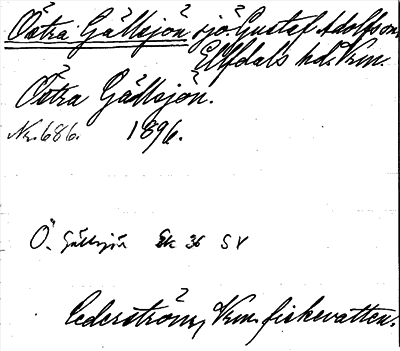 Östra Gällsjön, sjö. Gustaf Adolfs sn.
Elfdals hd. Vrm.
Östra Gällsjön.
Nr. 686. 1896.
Ö. Gällsjön Ek 36 SV
Cederström, Vrm. fiskevatten.